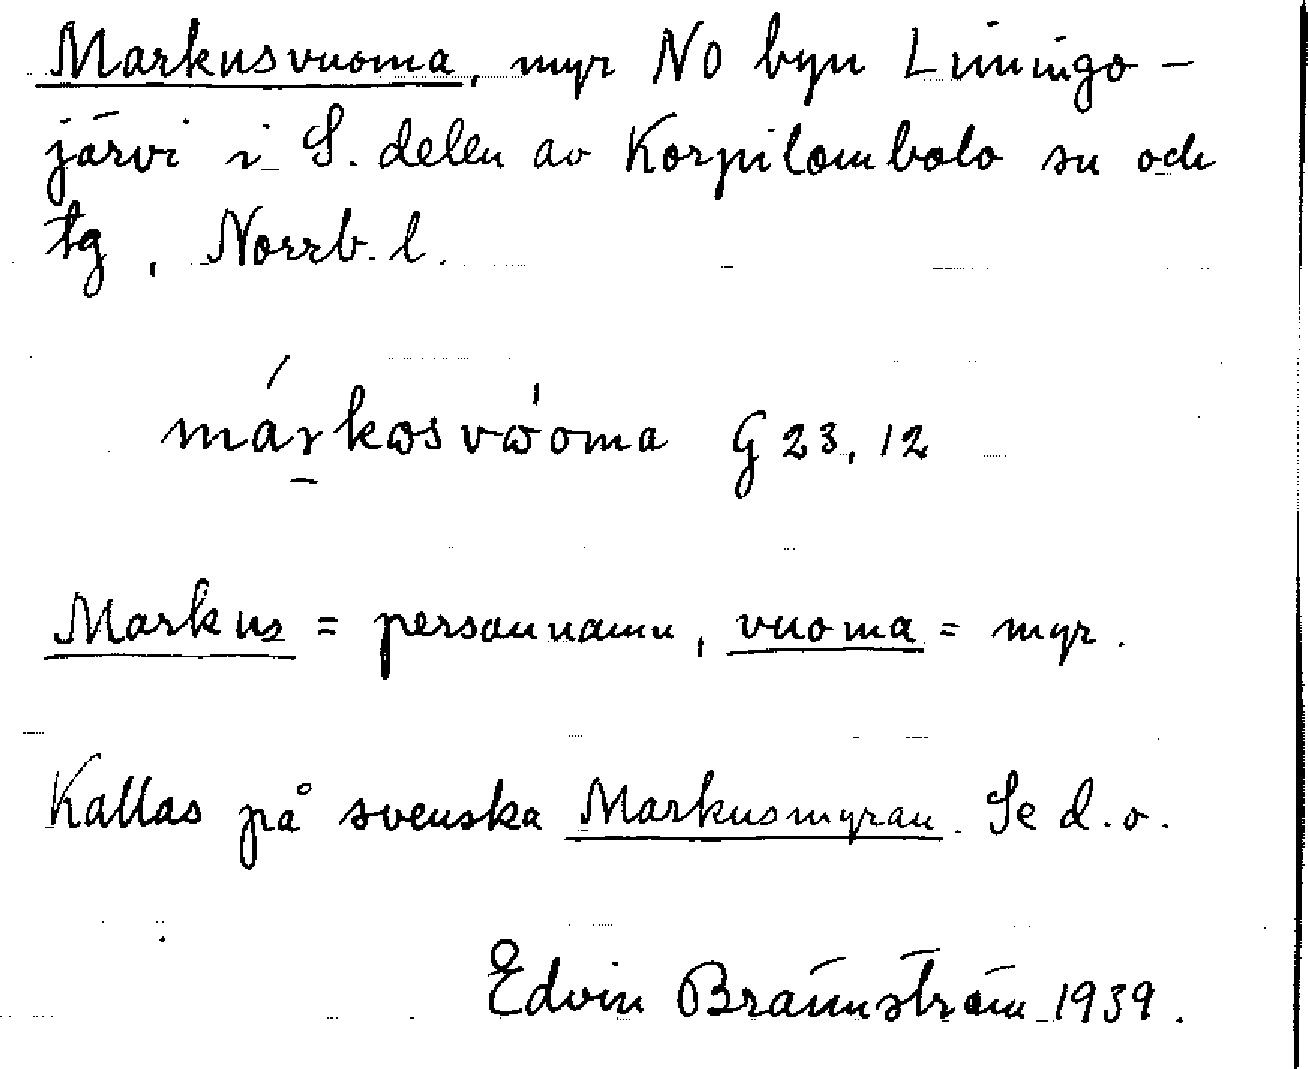 Markusvuoma, myr NO byn Limingo-
järvi i S. delen av Korpilombolo sn och
tg, Norrb. l.
márkωsvω'oma G 23, 12
Markus = personnamn, vuoma = myr.
Kallas på svenska Markusmyran. Se d. o.
Edvin Brännström 1939.